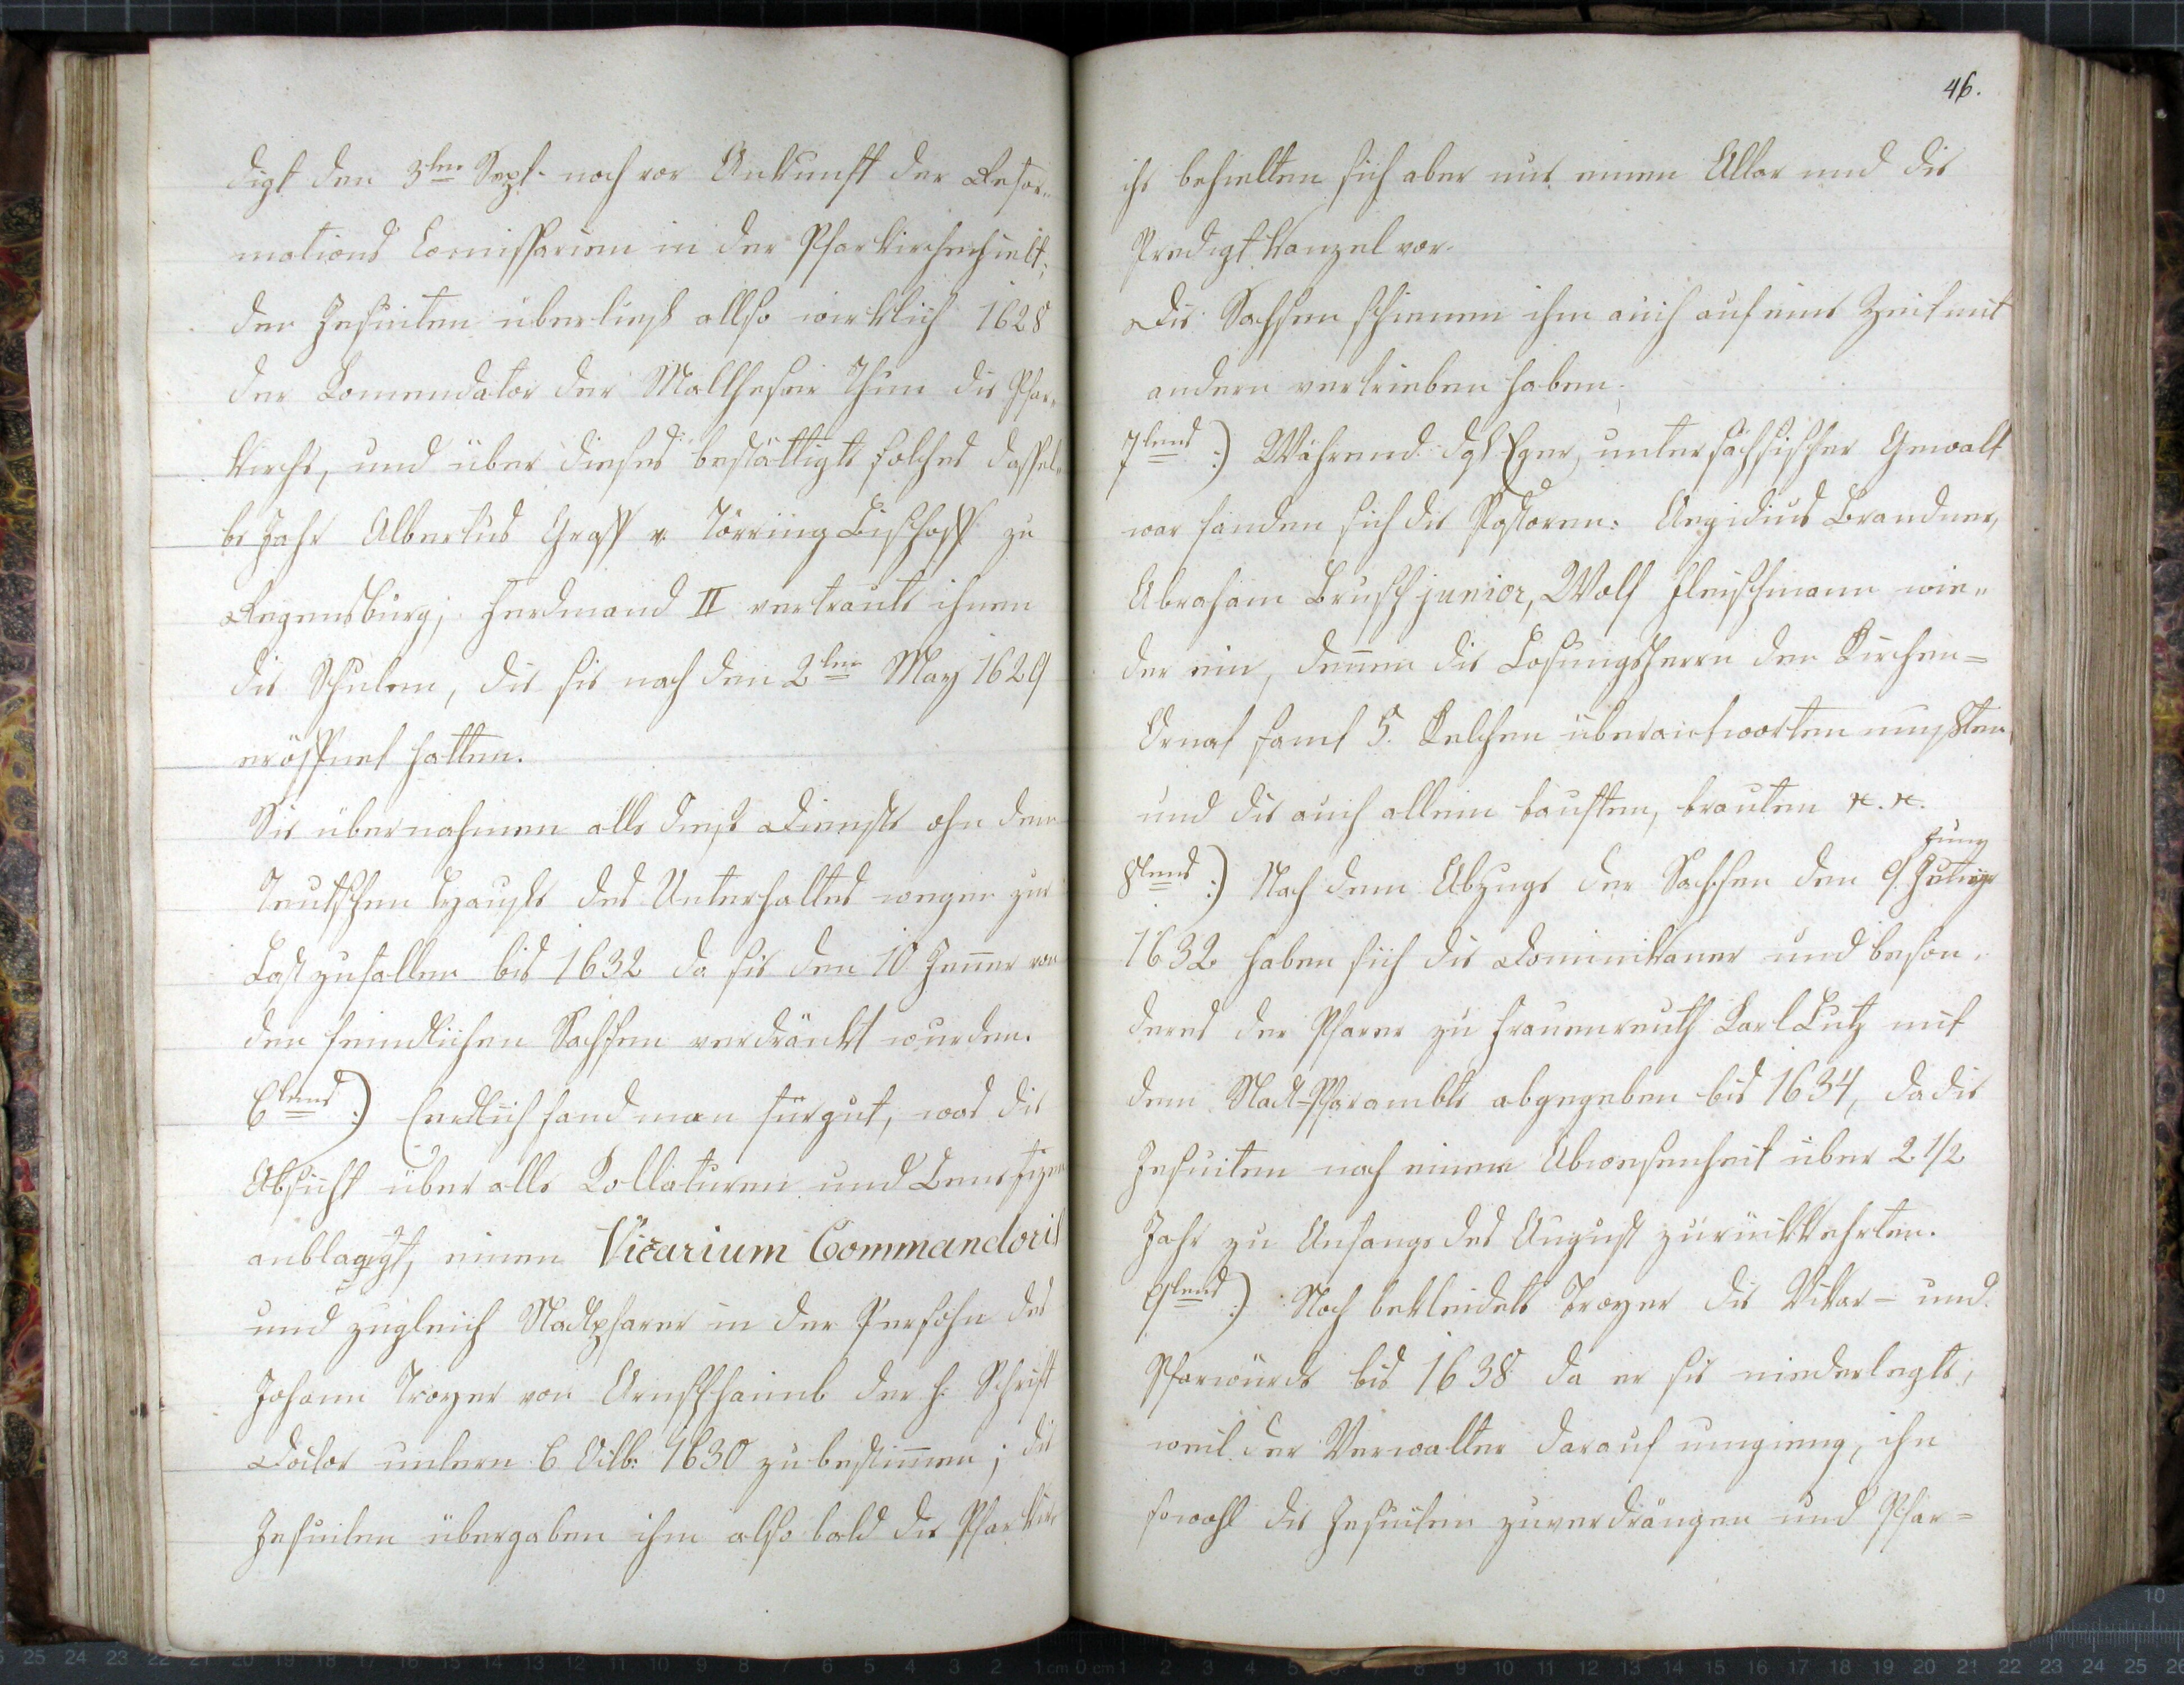 digt den 3ten Sept. noch vor Ankunft der Refor„
mations Comissarien in der Pfarkirche hielt;
den Jesuiten überließ allso wirklich 1628
der Comendator der Maltheser Thun die Pfar„
kirche, und über dieses bestättigte solches dassel„
be Jahr Albertus Graff v. Törring Bischoff zu
Regensburg; Ferdinand II vertraute ihnen
die Schulen, die sie nach den 2ten May 1629
eröffnet hatten.
Sie übernahmen alle diese Dienste ohn dem
Teutschen Hauße des Unterhaltes wegen zur
Last zufallen bis 1632 da sie den 10 Jenner von
den feindlichen Sachsen verdränkt wurden.
6tens:) Endlich fand man für gut, was die
Absicht über alle Kollaturen und Benefizen
anblangt, einen Vicarium Commandoris
und zugleich Stadtpfarer in der Persohn des
Johann Troyer von Arnschhaimb der h. Schrift
Doctor untern 6 Octb: 1630 zu bestimen; die
Jesuiten übergaben ihm also bald die Pfarkir„
46.
che behielten sich aber nur einen Altar und die
Predigt Kanzel vor.
Die Sachsen schienen ihn auch auf eine Zeit mit
andern vertrieben haben.
7tens:) Während daß Eger unter sächsischer Gewalt
war fanden sich die Pastoren: Aegidius Brandner,
Abraham Brusch junior, Wolf Fleischmann wie„
der ein, denen die Losungsherrn den Kirchen=
Ornat samt 5. Kelchen überantworten mußten,
und die auch allein tauften, trauten etc. etc.
8tens:) Nach dem Abzuge der Sachsen den 9. Juny
1632 haben sich die Dominikaner und beson„
ders der Pfarer zu Frauenreuth Karl Lutz mit
dem Stadt-Pfarambte abgegeben bis 1634, da die
Jesuiten nach einer Abwesenheit über 2 1/2
Jahr zu Anfangs des August zurückkehrten.
9tens:) Noch bekleidete Troyer die Vikar- und
Pfarwürde bis 1638 da er sie niederlegte,
weil der Verwalter darauf umgieng, ihn
sowohl die Jesuiten zuverdrängen und Pfar=